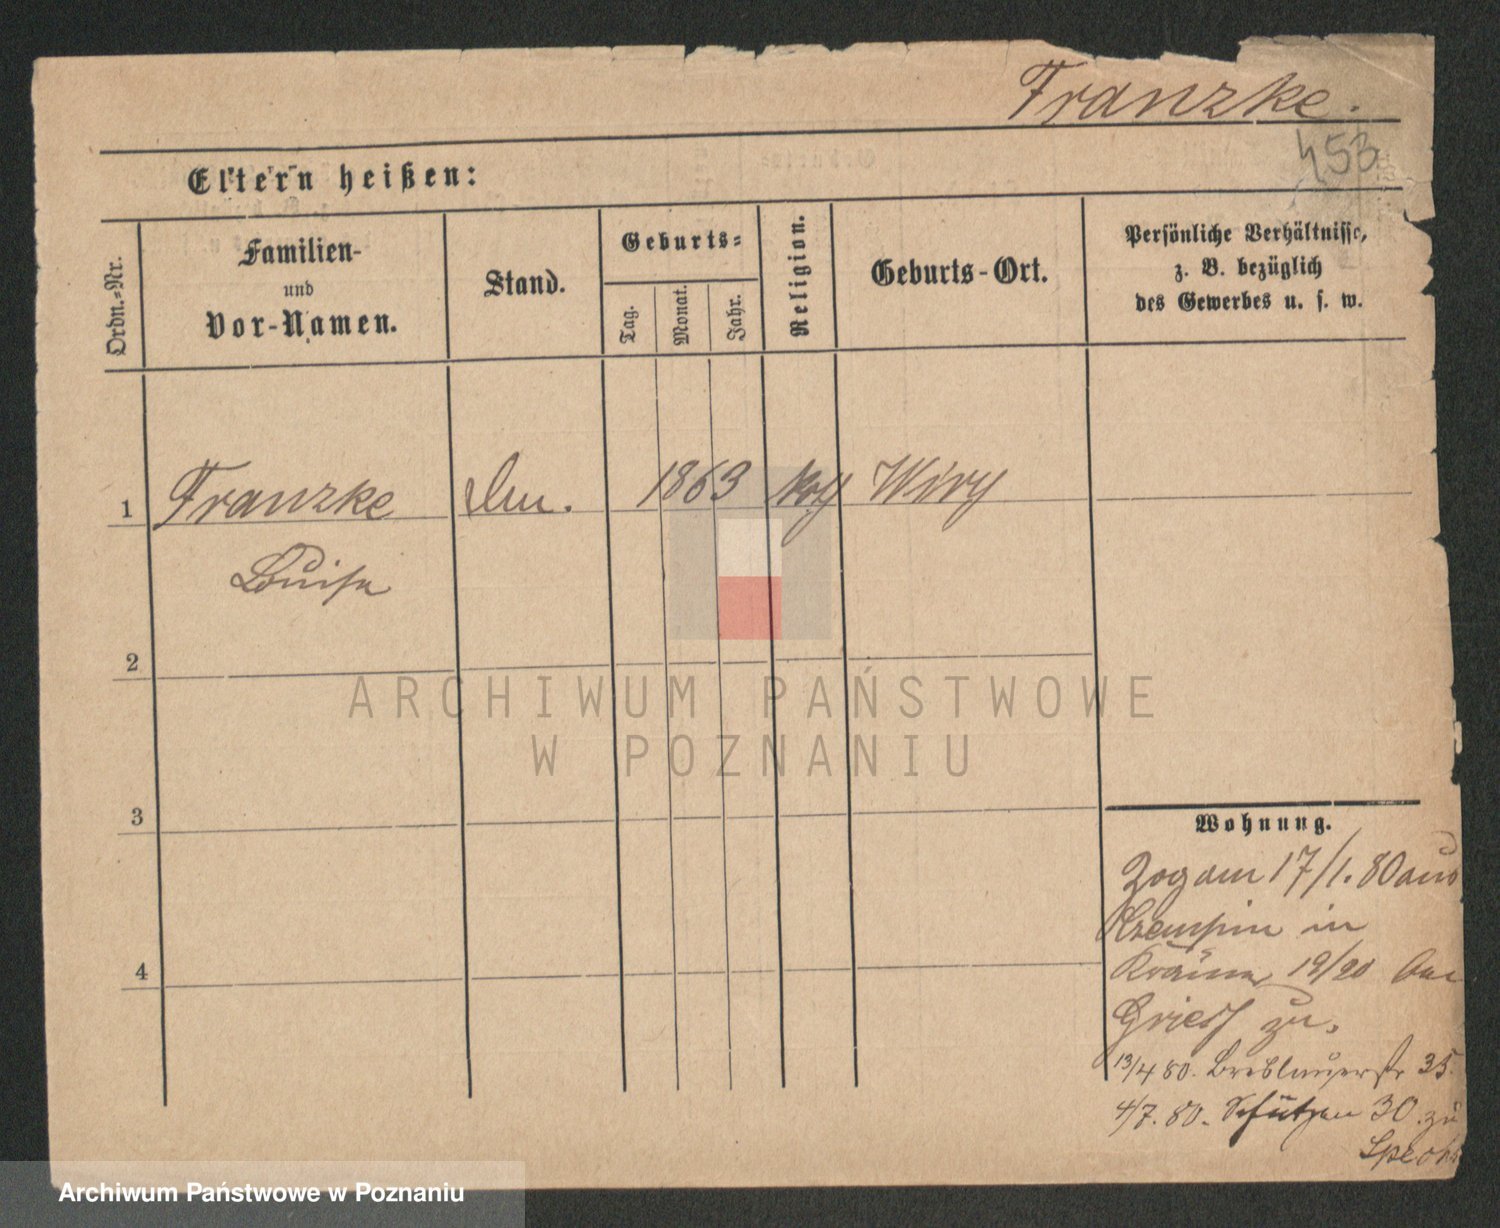 Franzke.
453
Eltern heißen:
Ordn.-Nr.
Familien-
und
Vor-Namen.
Stand.
Geburts-
Tag.
Monat.
Jahr.
Religion.
Geburts-Ort.
Persönliche Verhältnisse,
z. B. bezüglich
des Gewerbes u. s. w.
1 Franzke 1863 Wiry
Louise
2
3
4
ARCHIWUM PAŃSTWOWE
W POZNANIU
Wohnung.
Zog am 17/1. 80 aus
in
Krämer 19/20
zu.
13/4 80. Breslauerstr 35.
4/7. 80. Schützen 30. zu
Archiwum Państwowe w Poznaniu